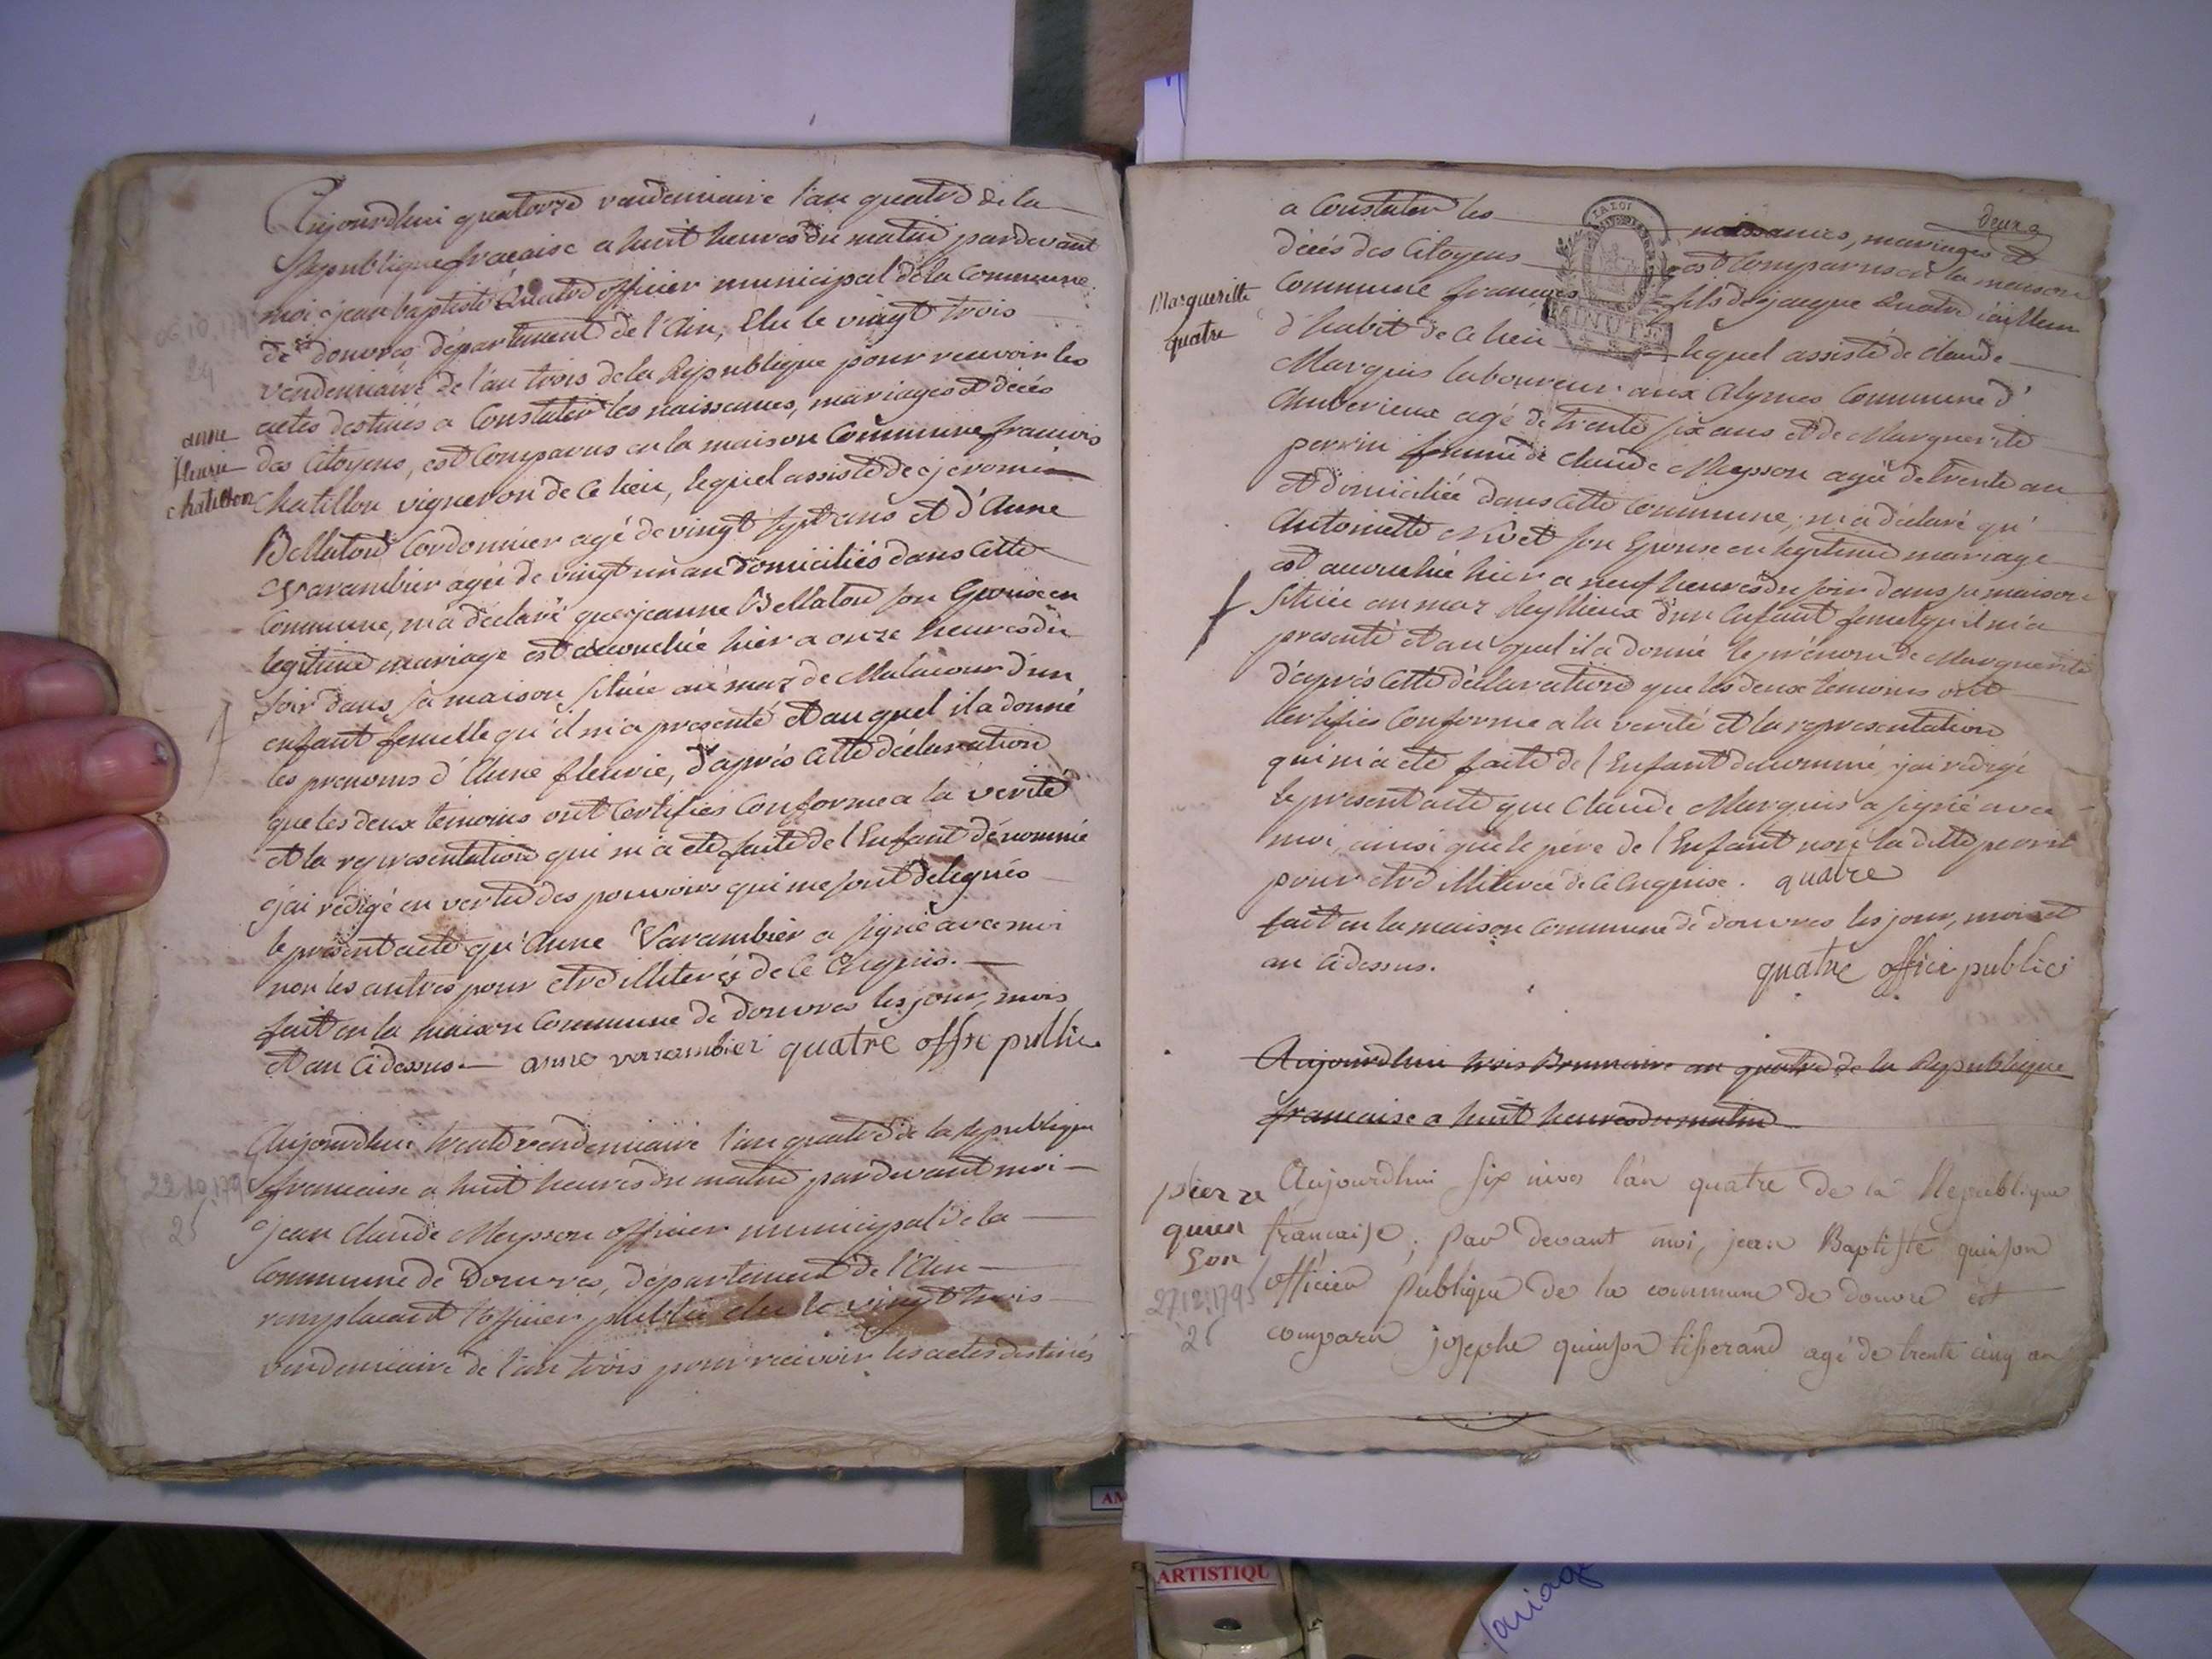 Aujourdhui quatorze vendemiaire l'an quatre de la
Republique francaise a huit heures du matin pardevant
moi jean baptiste Quatre officier municipal de la Commune
de douvres département de l'Ain, Elu le vingt trois
vendemiaire de l'an trois de la Republique pour recevoir les
actes destinés a Constater les naissances, mariages et décès
anne fleurie chatillon
des Citoyens, est Comparus en la maison Commune francois
Chatillon vigneron de ce lieu, lequel assisté de jeromie
Bellaton Cordonnier agé de vingt sept ans et d'Anne
Varambier agée de vingt un an domiciliés dans cette
Commune, m'a déclaré que jeanne Bellaton son Epouse en
legitime mariage est accouchée hier a onze heures du
soir dans sa maison située au mas de Malacour d'un
enfant femelle qu'il m'a presenté et au quel il a donné
les prenoms d'Anne fleurie, d'après cette déclaration
que les deux temoins ont Certifiés Conforme a la verité
et la representation qui m'a eté faite de l'Enfant dénommé
j'ai redigé en vertu des pouvoirs qui me sont delegués
le present acte qu'Anne Varambier a signé avec moi
non les autres pour etre illiterés de ce Enquis.
fait en la maison Commune de douvres les jour, mois
et an cidessus. anne varrambier quatre offre public
Aujourdhui trente vendemiaire l'an quatre de la Republique
francaise a huit heures du matin pardevant moi
jean Claude Meysson officier municipal de la
Commune de Douvres, département de l'Ain
remplacant l'officier public elu le vingt trois
vendemiaire de l'an trois pour recevoir les actes destinés
deux
a Constater les naissances, mariages et
décès des Citoyens est Comparus en la maison
Margueritte quatre
Commune francois fils de jacque Quatre
d'habit de ce lieu lequel assisté de claude
Marquis laboureur aux Alymes Commune d'
Ambérieux agé de trente six ans et de Marguerite
perrin femme de Claude Meysson agée de trente an
et domiciliée dans cette Commune, m'a déclaré qu'
Antoinette son Epouse en legitime mariage
est accouchée hier a neuf heures du soir dans sa maison
située au mas d'un Enfant femel qu'il m'a
presenté et au quel il a donné le prénom de Marguerite
d'après cette déclaration que les deux temoins ont
Certifiés Conforme a la verité et la representation
qui m'a eté faite de l'Enfant denommé, j'ai redigé
le present acte que Claude Marquis a signé avec
moi, ainsi que le père de l'Enfant non la ditte perrin
pour etre illiterée de ce enquise. quatre
fait en la maison Commune de douvres les jour, mois et
an cidessus. quatre officie publici
Aujourdhui trois Brumaire an quatre de la Republique
francaise a huit heures du matin
pierre quien son
27.12.1795
26
Aujourdhui six nivos l'an quatre de la Republique
francaise; Par devant moi, jean Baptiste quinson
officier Publique de la commune de douvre est
comparu josephe quinson tisserand agé de trente cinq an
ARTISTIQU